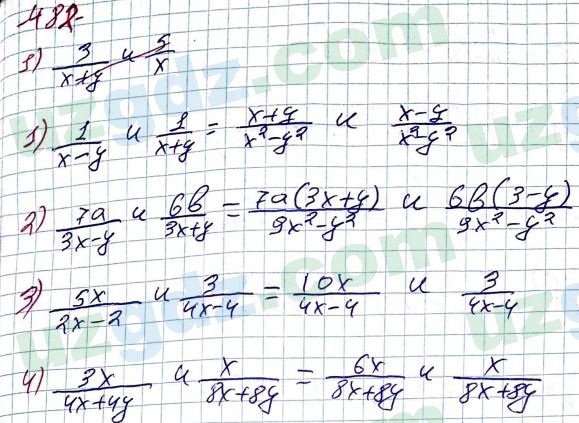 482
1) 3/(x+y) и 5/x
1) 1/(x-y) и 1/(x+y) = (x+y)/(x²-y²) и (x-y)/(x²-y²)
2) 7a/(3x-y) и 6b/(3x+y) = 7a(3x+y)/(9x²-y²) и 6b(3-y)/(9x²-y²)
3) 5x/(2x-2) и 3/(4x-4) = 10x/(4x-4) и 3/(4x-4)
4) 3x/(4x+4y) и x/(8x+8y) = 6x/(8x+8y) и x/(8x+8y)
uzgdz.com